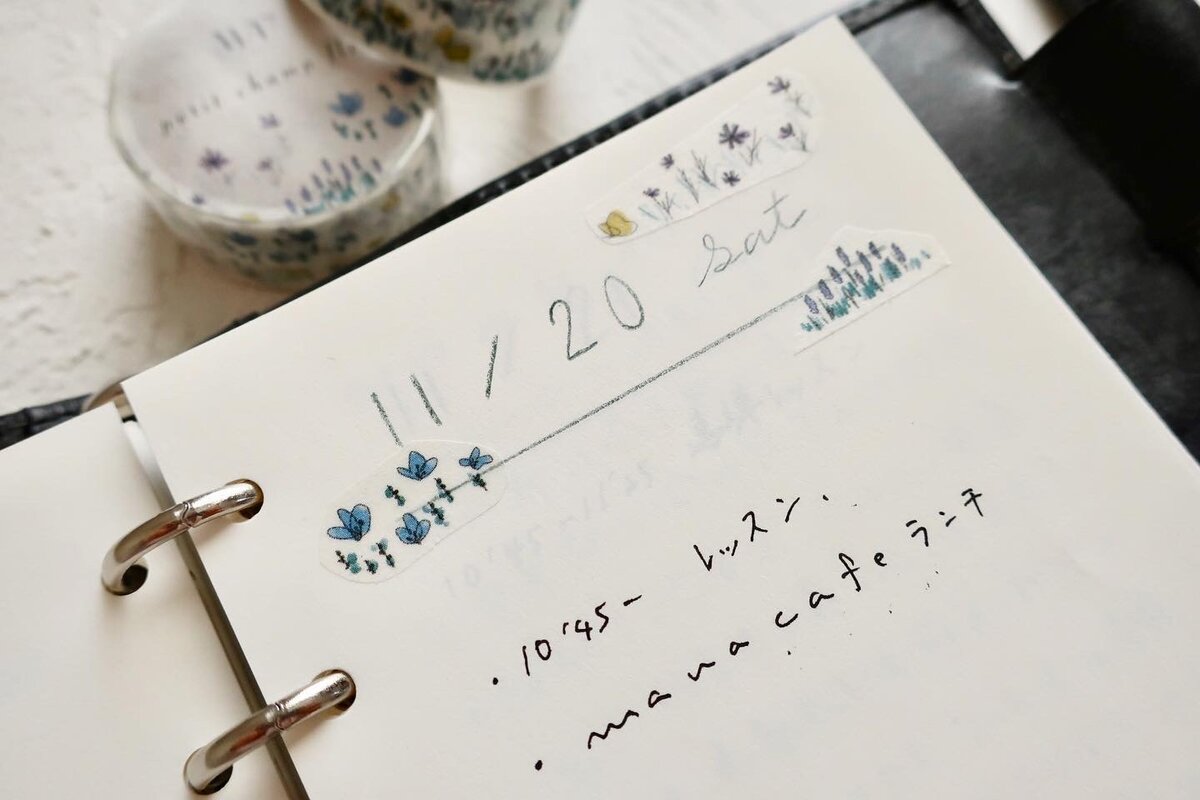 petit champ
11/20 sat
・10'45- レッスン.
・mana cafe ランチ